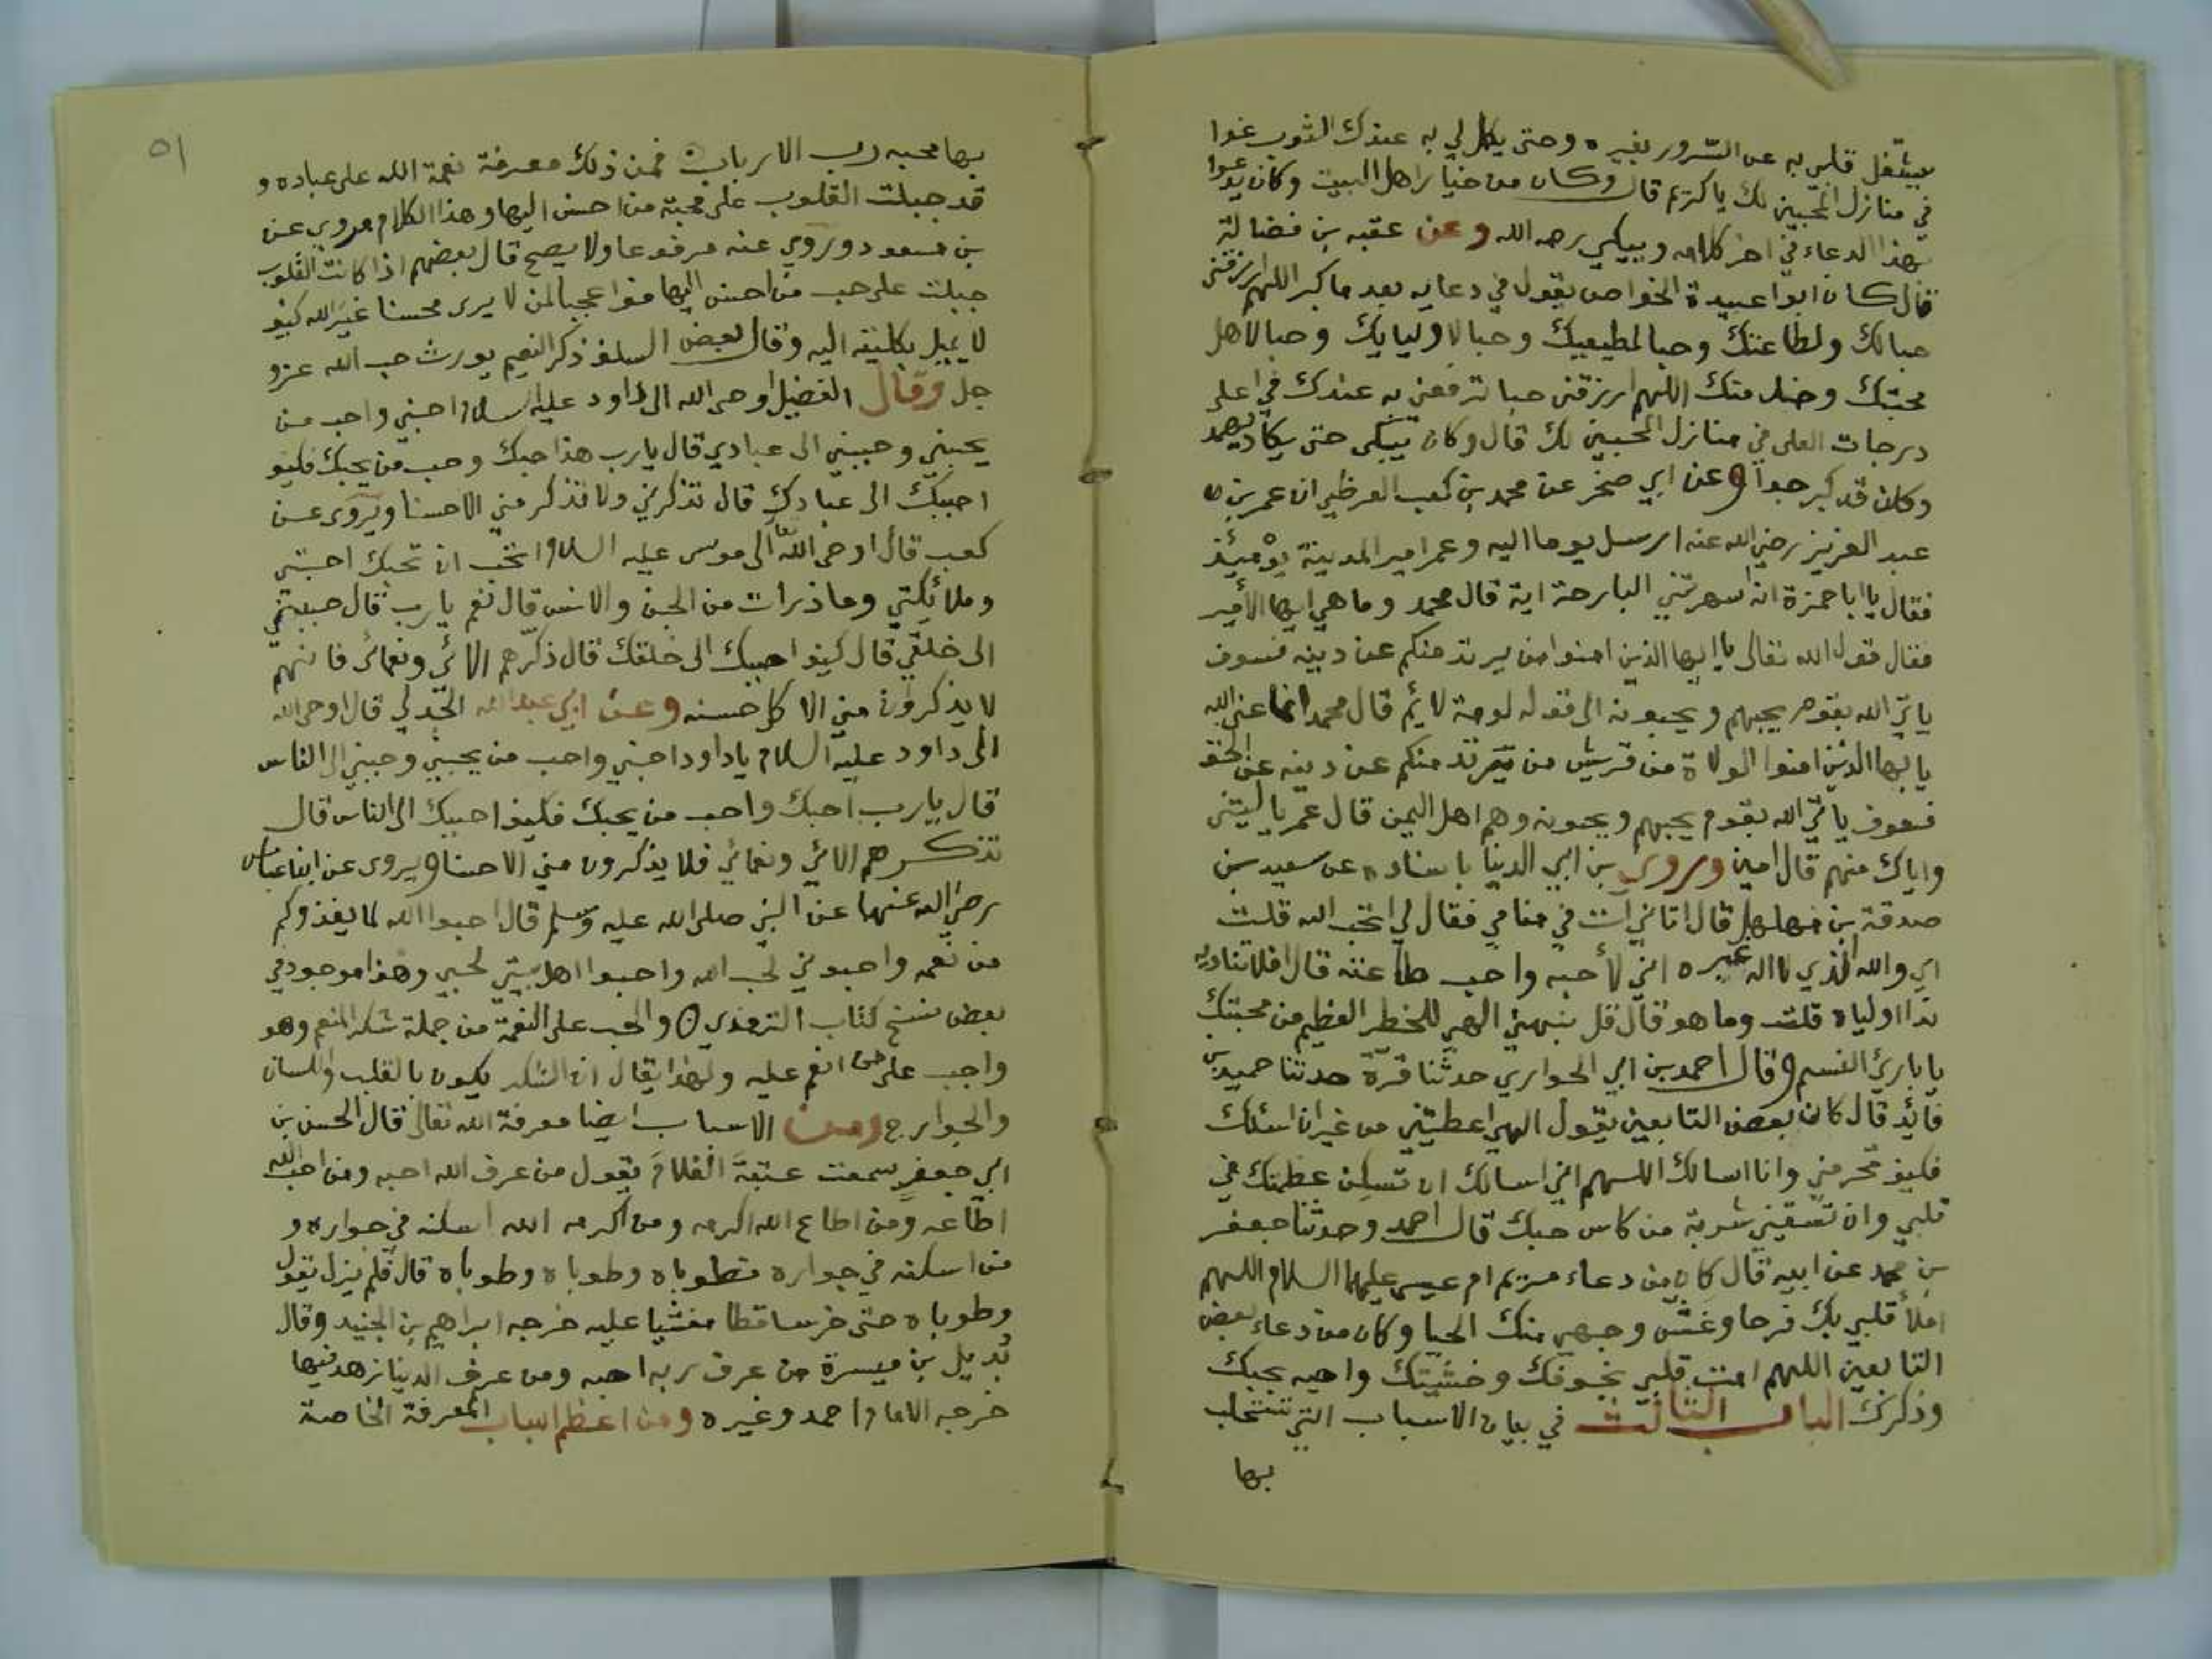 يشغل قلبي به عن السرور بغيره وحتى يكمل لي به عندك الثوب غوا
في منازل المحبين لك يا كريم قال وكان من خيار اهل البيت وكان يدعوا
بهذا الدعاء في اخر كلامه ويبكي رحمه الله وعن عقبه بن فضالة
قال كان ابوا عبيدة الخواص يقول في دعايه بعد ما كبر اللهم ارزقني
حبالك ولطاعتك وحبا لمطيعيك وحبا لاوليايك وحبا لاهل
محبتك وخدمتك اللهم ارزقني حبا ترفعني به عندك في اعلى
درجات العلى في منازل المحبين لك قال وكان يبكى حتى يكاد يهمد
وكان قد كبر جدا وعن ابي صخر عن محمد بن كعب القرظي ان عمر بن
عبد العزيز رضي الله عنه ارسل يوما اليه وعمر امير المدينة يومئذ
فقال يا ابا حمزة انه اسهرتني البارحة اية قال محمد وما هي ايها الأمير
فقال قول الله تعالى يا ايها الذين امنوا من يرتد منكم عن دينه فسوف
ياتي الله بقوم يحبهم ويحبونه الى قوله لومة لائم قال محمد انما عنى الله
يا يها الذين امنوا الولاة من قريش من يرتد منكم عن دينه عن الحق
فسوف ياتي الله بقوم يحبهم ويحبونه وهم اهل اليمن قال عمر يا ليتني
واياك منهم قال امين وروى بن ابي الدنيا باسناده عن سعيد بن
صدقة بن مهلهل قال اتاني آت في منامي فقال لي اتحب الله قلت
اي والله الذي لا اله غيره اني لأحبه واحب طاعته قال افلا تناديه
ندا اولياه قلت وما هو قال قل نبهني الهي للخطر العظيم من محبتك
يا باري النسم وقال احمد بن ابي الحواري حدثنا قرة حدثنا حميد بن
فائد قال كان بعض التابعين يقول الهي اعطيتني من غير ان اسئلك
فكيف تحرمني وانا اسالك اللهم اني اسالك ان تسكن عظمتك في
قلبي وان تسقيني شربة من كاس حبك قال احمد وحدثنا جعفر
بن محمد عن ابيه قال كان من دعاء مريم ام عيسى عليهما السلام اللهم
املأ قلبي بك فرحا وغش وجهي منك الحيا وكان من دعاء بعض
التابعين اللهم امت قلبي بخوفك وخشيتك واحيه بحبك
وذكرك الباب الثالث في بيان الاسباب التي تستجلب
بها
٥١
بها محبه رب الارباب فمن ذلك معرفة نعمة الله على عباده و
قد جبلت القلوب على محبة من احسن اليها وهذا الكلام مروي عن
بن مسعود وروي عنه مرفوعا ولا يصح قال بعضهم اذا كانت القلوب
جبلت على حب من احسن اليها فوا عجبا لمن لا يرى محسنا غير الله كيف
لا يميل بكليته اليه وقال بعض السلف ذكر النعيم يورث حب الله عزو
جل وقال الفضيل اوحى الله الى داود عليه السلام احبني واحب من
يحبني وحببني الى عبادي قال يارب هذا حبك وحب من يحبك فكيف
احببك الى عبادك قال تذكرني ولا تذكر مني الا حسنا ويروى عن
كعب قال اوحى الله الى موسى عليه السلام اتحب ان تحبك احبتي
وملائكتي وما ذرات من الجن والانس قال نعم يارب قال حببني
الى خلقي قال كيف احببك الى خلقك قال ذكرهم الائي ونعمائي فانهم
لا يذكرون مني الا كل حسنه وعن ابي عبدالله الجدلي قال اوحى الله
الى داود عليه السلام ياداود احبني واحب من يحبني وحببني الى الناس
قال يا رب احبك واحب من يحبك فكيف احببك الى الناس قال
تذكرهم الائي ونعمائي فلا يذكرون مني الا حسنا ويروى عن ابن عباس
رضي الله عنهما عن النبي صلى الله عليه وسلم قال احبوا الله لما يغذوكم
من نعمه واحبوني لحب الله واحبوا اهل بيتي لحبي وهذا موجود في
بعض نسخ كتاب الترمذي والحب على النعمة من جملة شكر المنعم وهو
واجب على من انعم عليه ولهذا يقال ان الشكر يكون بالقلب واللسان
والجوارح ومن الاسباب ايضا معرفة الله تعالى قال الحسن بن
ابي جعفر سمعت عتبة الغلام يقول من عرف الله احبه ومن احب الله
اطاعه ومن اطاع الله اكرمه ومن اكرمه الله اسكنه في جواره و
من اسكنه في جواره فطوباه وطوباه وطوباه قال فلم يزل يقول
وطوباه حتى خر ساقطا مغشيا عليه خرجه ابراهيم بن الجنيد وقال
بديل بن ميسرة من عرف ربه احبه ومن عرف الدينا زهد فيها
خرجه الامام احمد وغيره ومن اعظم اسباب المعرفة الخاصة